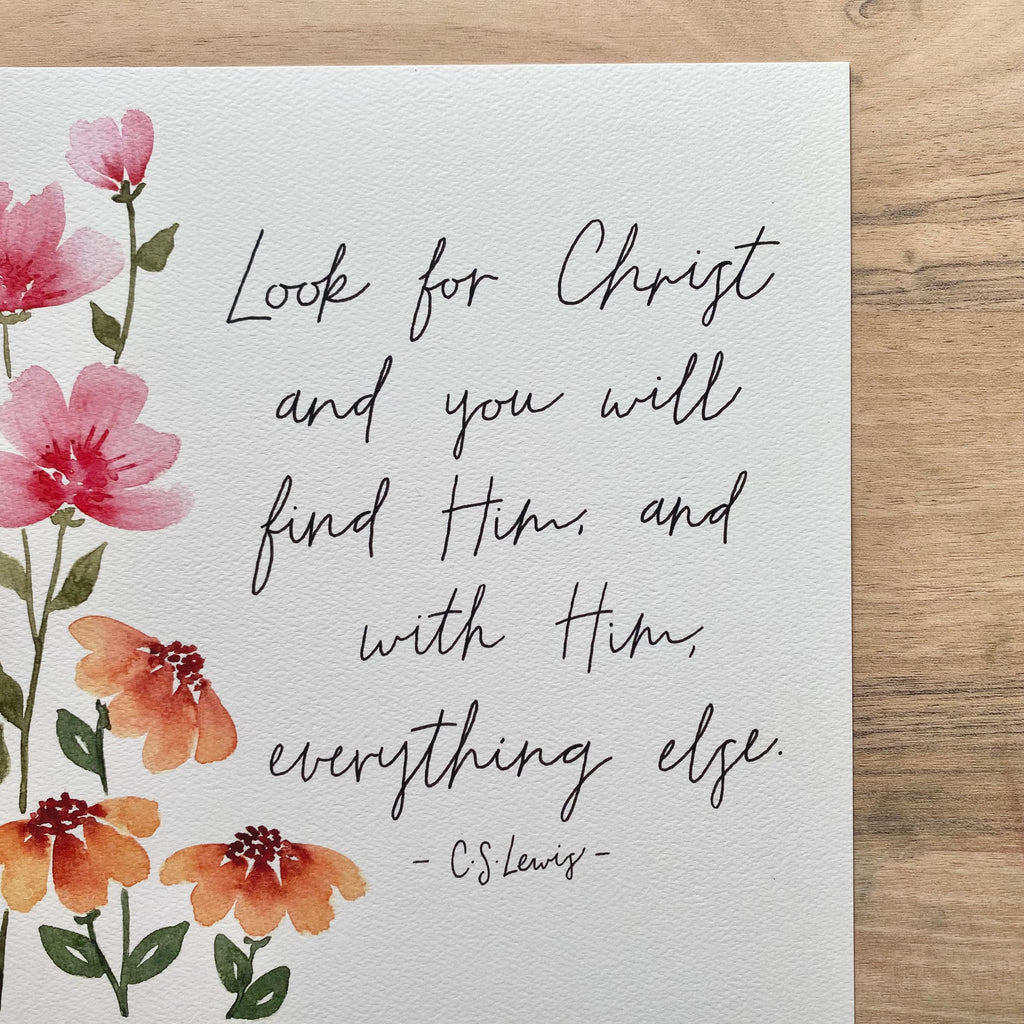 Look for Christ
and you will
find Him, and
with Him,
everything else.
- C.S. Lewis -